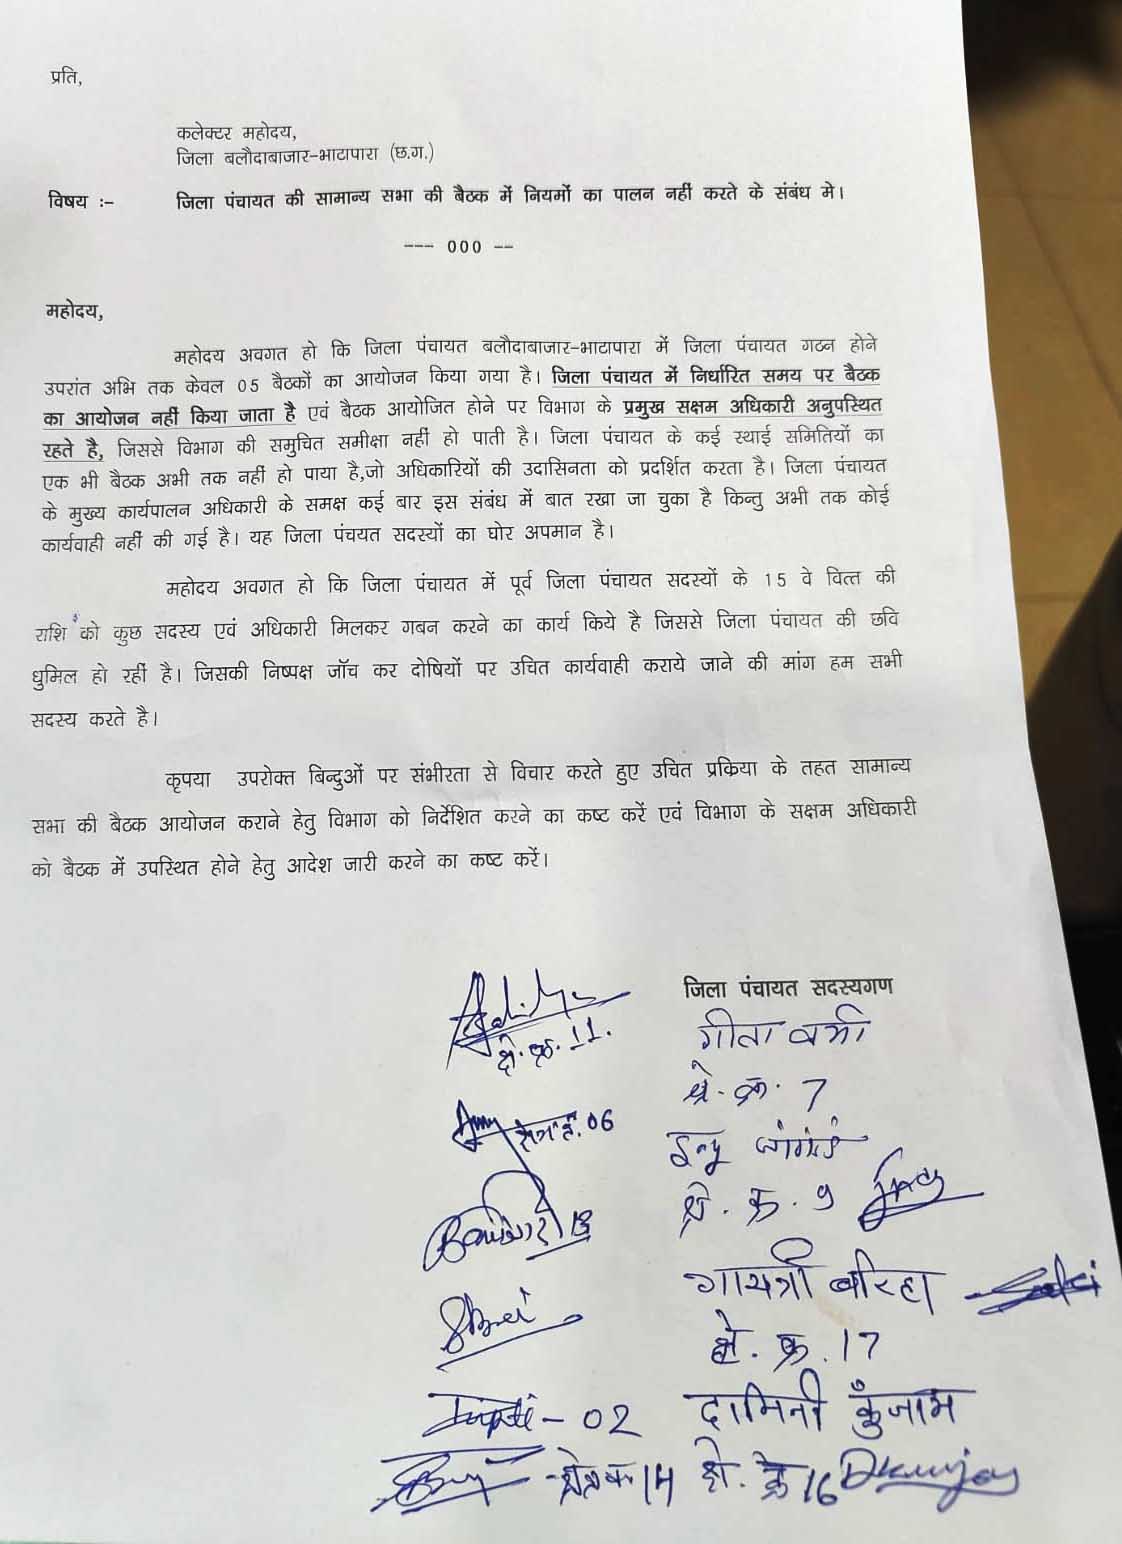 प्रति,
कलेक्टर महोदय,
जिला बलौदाबाजार-भाटापारा (छ.ग.)
विषय :- जिला पंचायत की सामान्य सभा की बैठक में नियमों का पालन नहीं करते के संबंध मे।
--- 000 --
महोदय,
महोदय अवगत हो कि जिला पंचायत बलौदाबाजार-भाटापारा में जिला पंचायत गठन होने
उपरांत अभि तक केवल 05 बैठकों का आयोजन किया गया है। जिला पंचायत में निर्धारित समय पर बैठक
का आयोजन नहीं किया जाता है एवं बैठक आयोजित होने पर विभाग के प्रमुख सक्षम अधिकारी अनुपस्थित
रहते है, जिससे विभाग की समुचित समीक्षा नहीं हो पाती है। जिला पंचायत के कई स्थाई समितियों का
एक भी बैठक अभी तक नहीं हो पाया है,जो अधिकारियों की उदासिनता को प्रदर्शित करता है। जिला पंचायत
के मुख्य कार्यपालन अधिकारी के समक्ष कई बार इस संबंध में बात रखा जा चुका है किन्तु अभी तक कोई
कार्यवाही नहीं की गई है। यह जिला पंचयत सदस्यों का घोर अपमान है।
महोदय अवगत हो कि जिला पंचायत में पूर्व जिला पंचायत सदस्यों के 15 वे वित्त की
राशि को कुछ सदस्य एवं अधिकारी मिलकर गबन करने का कार्य किये है जिससे जिला पंचायत की छवि
धुमिल हो रहीं है। जिसकी निष्पक्ष जॉच कर दोषियों पर उचित कार्यवाही कराये जाने की मांग हम सभी
सदस्य करते है।
कृपया उपरोक्त बिन्दुओं पर संभीरता से विचार करते हुए उचित प्रक्रिया के तहत सामान्य
सभा की बैठक आयोजन कराने हेतु विभाग को निर्देशित करने का कष्ट करें एवं विभाग के सक्षम अधिकारी
को बैठक में उपस्थित होने हेतु आदेश जारी करने का कष्ट करें।
जिला पंचायत सदस्यगण
क्षे. क्र. 11.
गीता वर्मा
क्षे. क्र. 7
06
इन्दु
क्षे. क्र. 9
13
गायत्री बरिहा
क्षे. क्र. 17
- 02
दामिनी कुँजाम
14
क्षे. क्रं 16